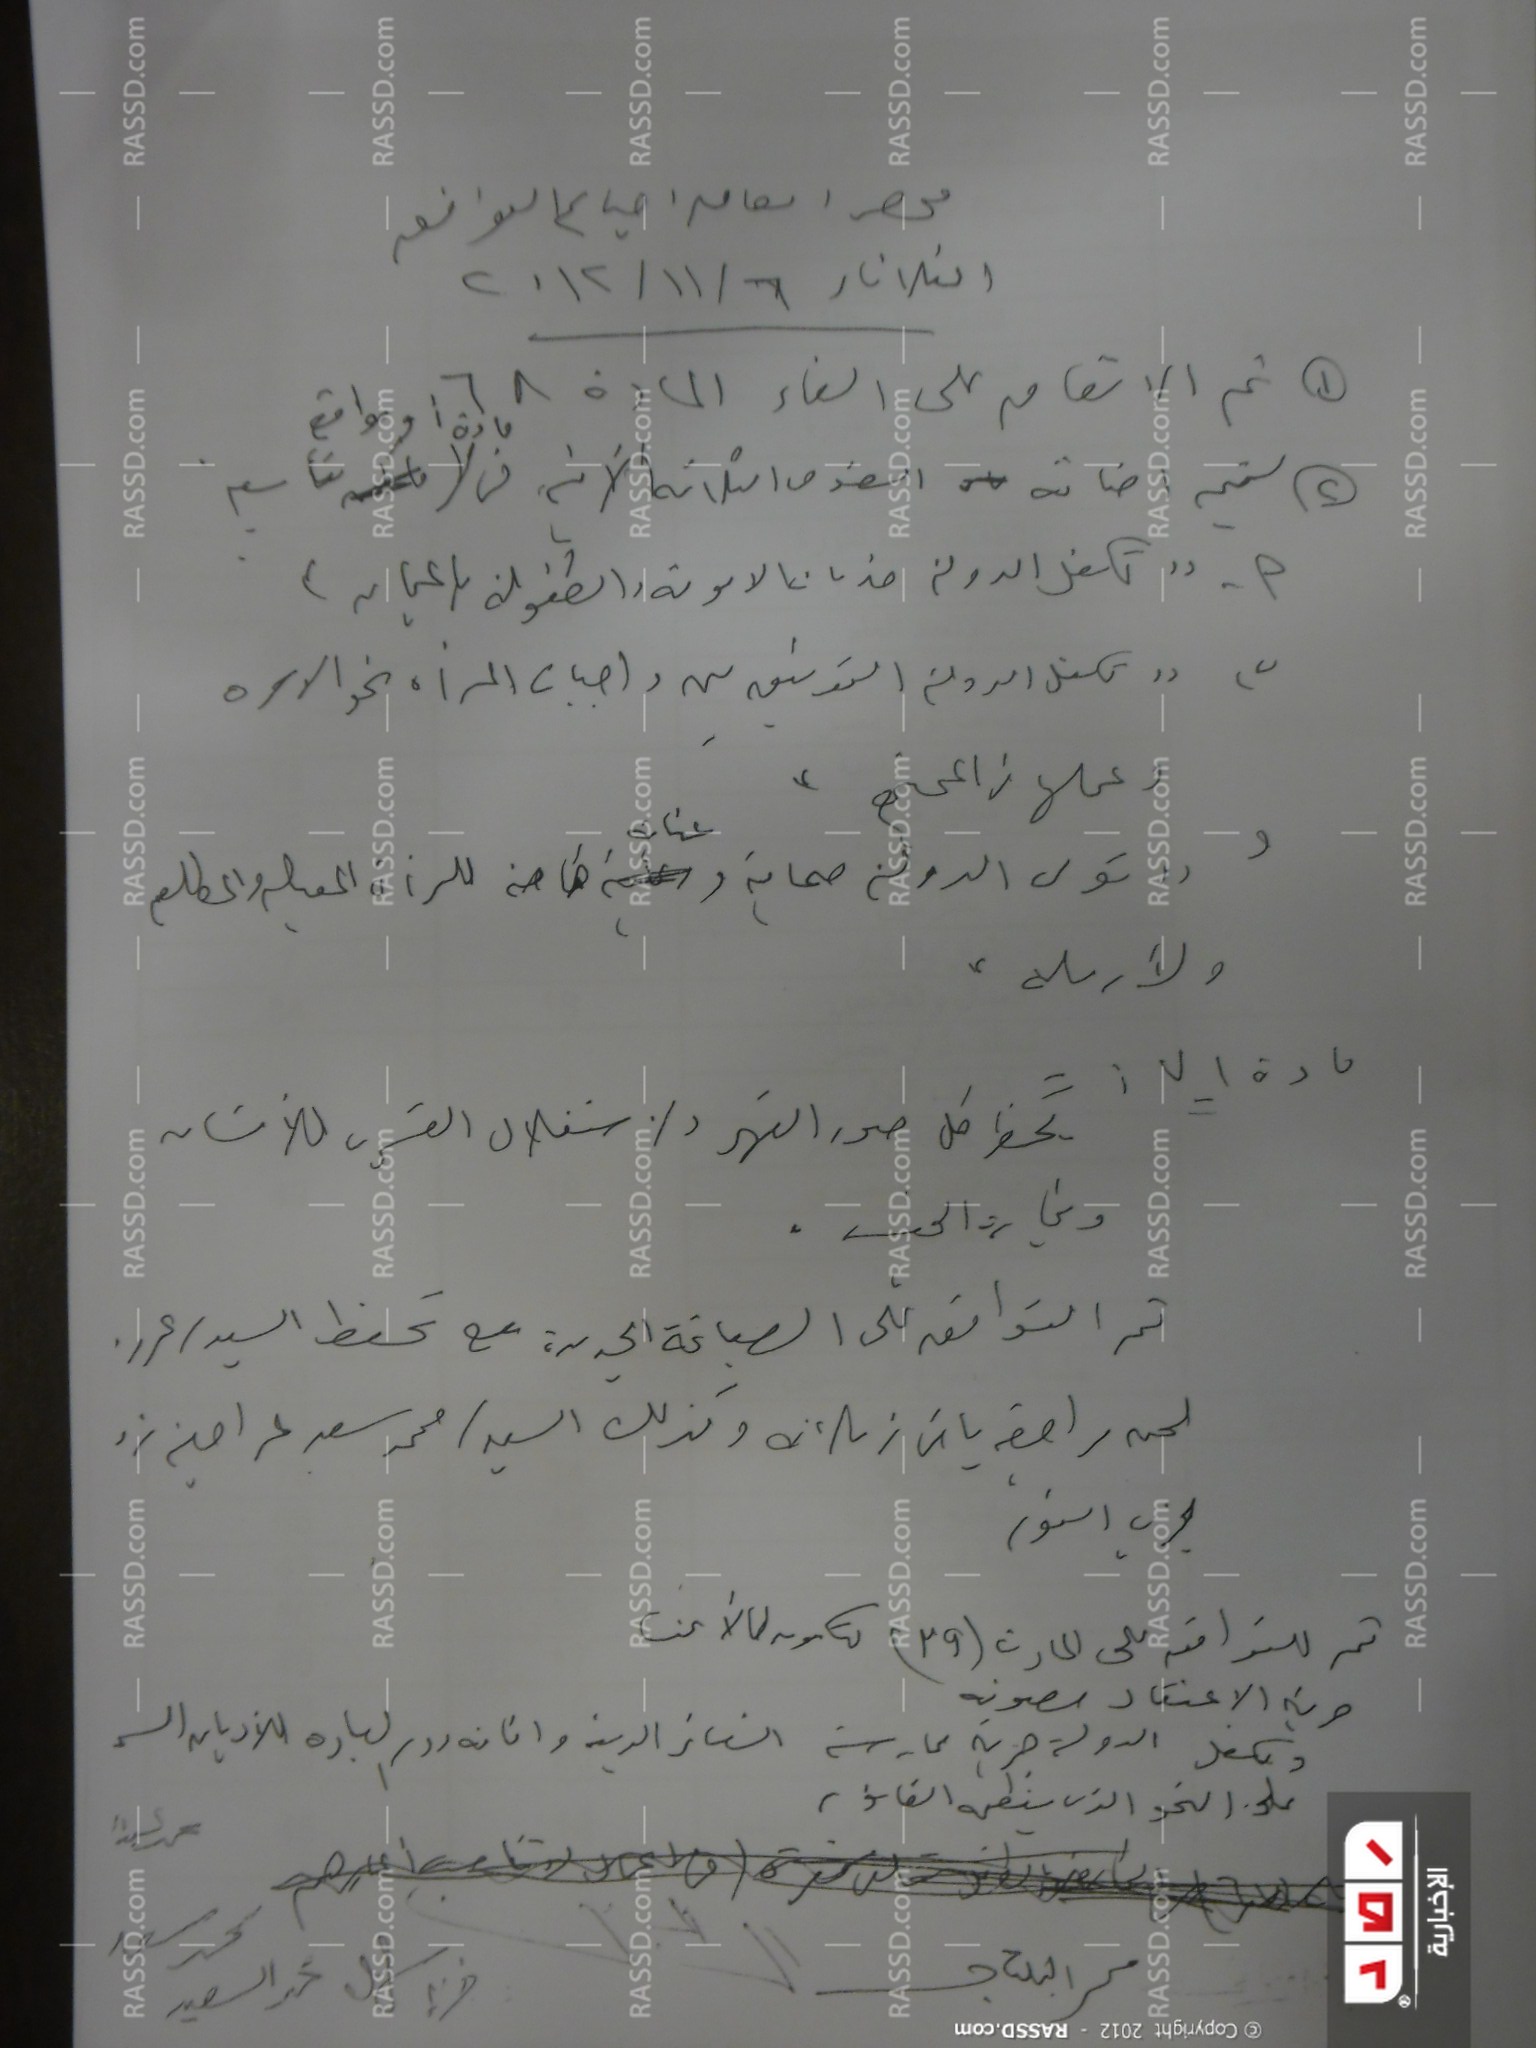 محضر اتفاق اجتماع التوافق
الثلاثاء ٦/١١/٢٠١٢
① تم الاتفاق على الغاء المادة ٦٨
② يتم اضافة النصوص الثلاثة الآتية في مادة ١٠ أو مواقع تناسبه
أ- "تكفل الدولة خدمات الامومة والطفولة بالمجان"
ب "تكفل الدولة التوفيق بين واجبات المرأة نحو الاسرة
وعملها في المجتمع"
و "تتولى الدولة حماية وعناية خاصة للمرأة المعيلة والمطلقة
والأرملة"
مادة
يحظر كل صور القهر والاستغلال القسرى للأنسان
وتجارة الجنس .
تم التوافق على الصياغة الجديدة مع تحفظ السيد/
وكذلك السيد/ محمد سعد
حزب النور
تم التوافق على المادة (٣٩) لتكون كالآتى
حرية الاعتقاد مصونة
وتكفل الدولة حرية ممارسة الشعائر الدينية واقامة دور العبادة للأديان السماوية
على النحو الذى ينظمه القانون"
محمد البلتاجى
محمد سعد
RASSD.com
رصد
الإخبارية
© Copyright 2012 - RASSD.com